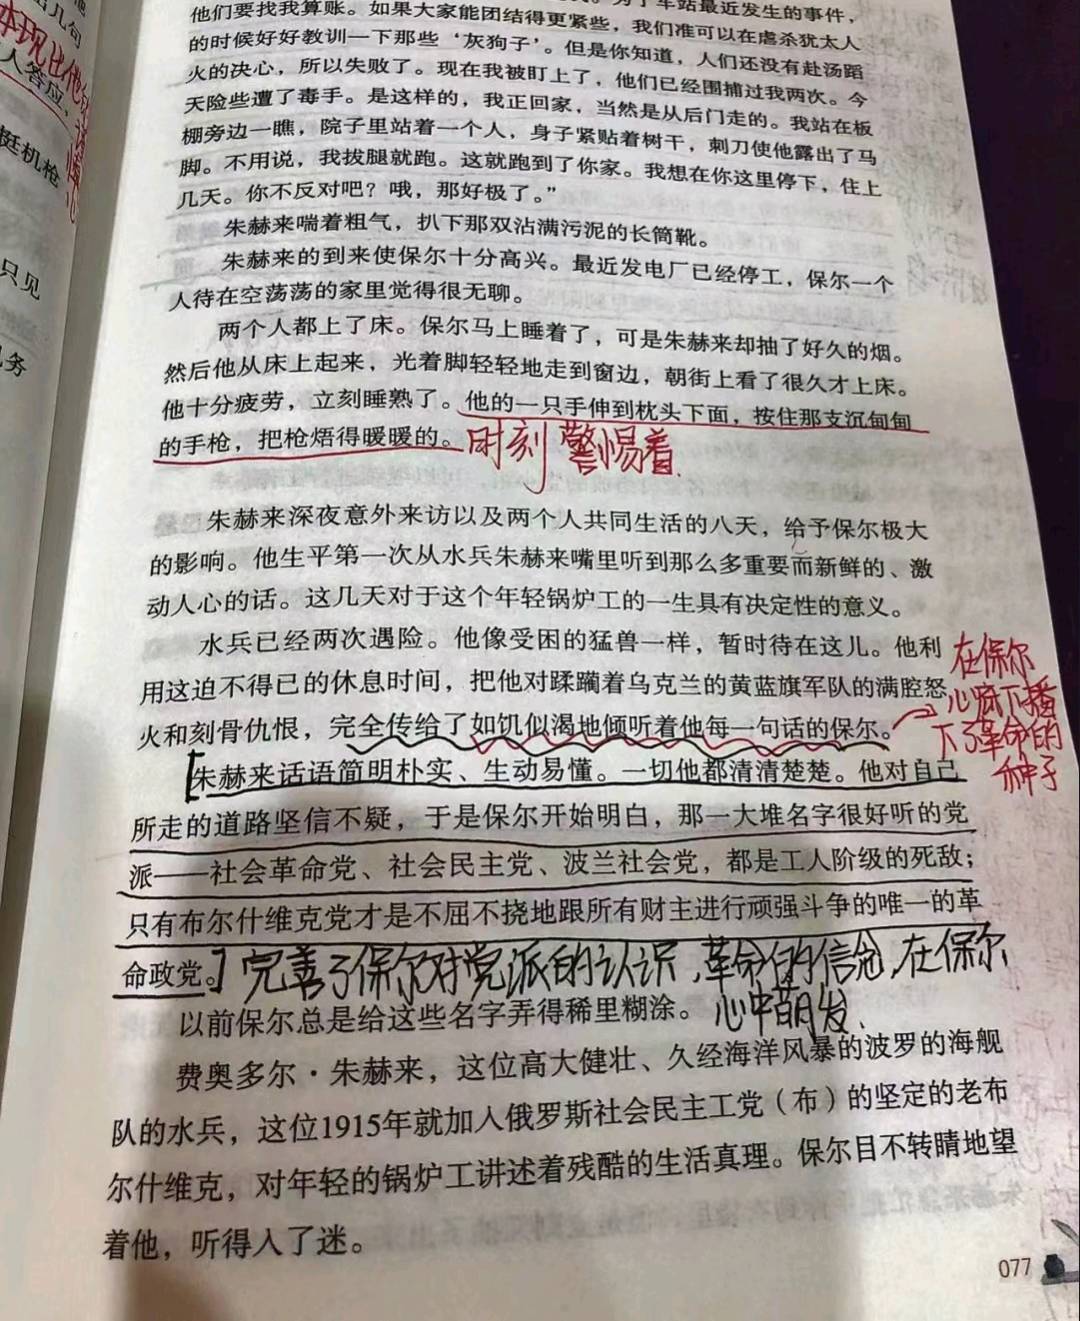 他们要找我算账。如果大家能团结得更紧些，我们准可以在虐杀犹太人
的时候好好教训一下那些‘灰狗子’。但是你知道，人们还没有赴汤蹈
火的决心，所以失败了。现在我被盯上了，他们已经围捕过我两次。今
天险些遭了毒手。是这样的，我正回家，当然是从后门走的。我站在板
棚旁边一瞧，院子里站着一个人，身子紧贴着树干，刺刀使他露出了马
脚。不用说，我拔腿就跑。这就跑到了你家。我想在你这里停下，住上
几天。你不反对吧？哦，那好极了。”
朱赫来喘着粗气，扒下那双沾满污泥的长筒靴。
朱赫来的到来使保尔十分高兴。最近发电厂已经停工，保尔一个
人待在空荡荡的家里觉得很无聊。
两个人都上了床。保尔马上睡着了，可是朱赫来却抽了好久的烟。
然后他从床上起来，光着脚轻轻地走到窗边，朝街上看了很久才上床。
他十分疲劳，立刻睡熟了。他的一只手伸到枕头下面，按住那支沉甸甸
的手枪，把枪焐得暖暖的。时刻警惕着.
朱赫来深夜意外来访以及两个人共同生活的八天，给予保尔极大
的影响。他生平第一次从水兵朱赫来嘴里听到那么多重要而新鲜的、激
动人心的话。这几天对于这个年轻锅炉工的一生具有决定性的意义。
水兵已经两次遇险。他像受困的猛兽一样，暂时待在这儿。他利
用这迫不得已的休息时间，把他对蹂躏着乌克兰的黄蓝旗军队的满腔怒
火和刻骨仇恨，完全传给了如饥似渴地倾听着他每一句话的保尔。
在保尔
心底下播
下了革命的
种子
朱赫来话语简明朴实、生动易懂。一切他都清清楚楚。他对自己
所走的道路坚信不疑，于是保尔开始明白，那一大堆名字很好听的党
派——社会革命党、社会民主党、波兰社会党，都是工人阶级的死敌；
只有布尔什维克党才是不屈不挠地跟所有财主进行顽强斗争的唯一的革
命政党。完善了保尔对党派的认识，革命的信念，在保尔
心中萌发.
以前保尔总是给这些名字弄得稀里糊涂。
费奥多尔·朱赫来，这位高大健壮、久经海洋风暴的波罗的海舰
队的水兵，这位1915年就加入俄罗斯社会民主工党（布）的坚定的老布
尔什维克，对年轻的锅炉工讲述着残酷的生活真理。保尔目不转睛地望
着他，听得入了迷。
077
几句
人答应，
挺机枪
只见
务